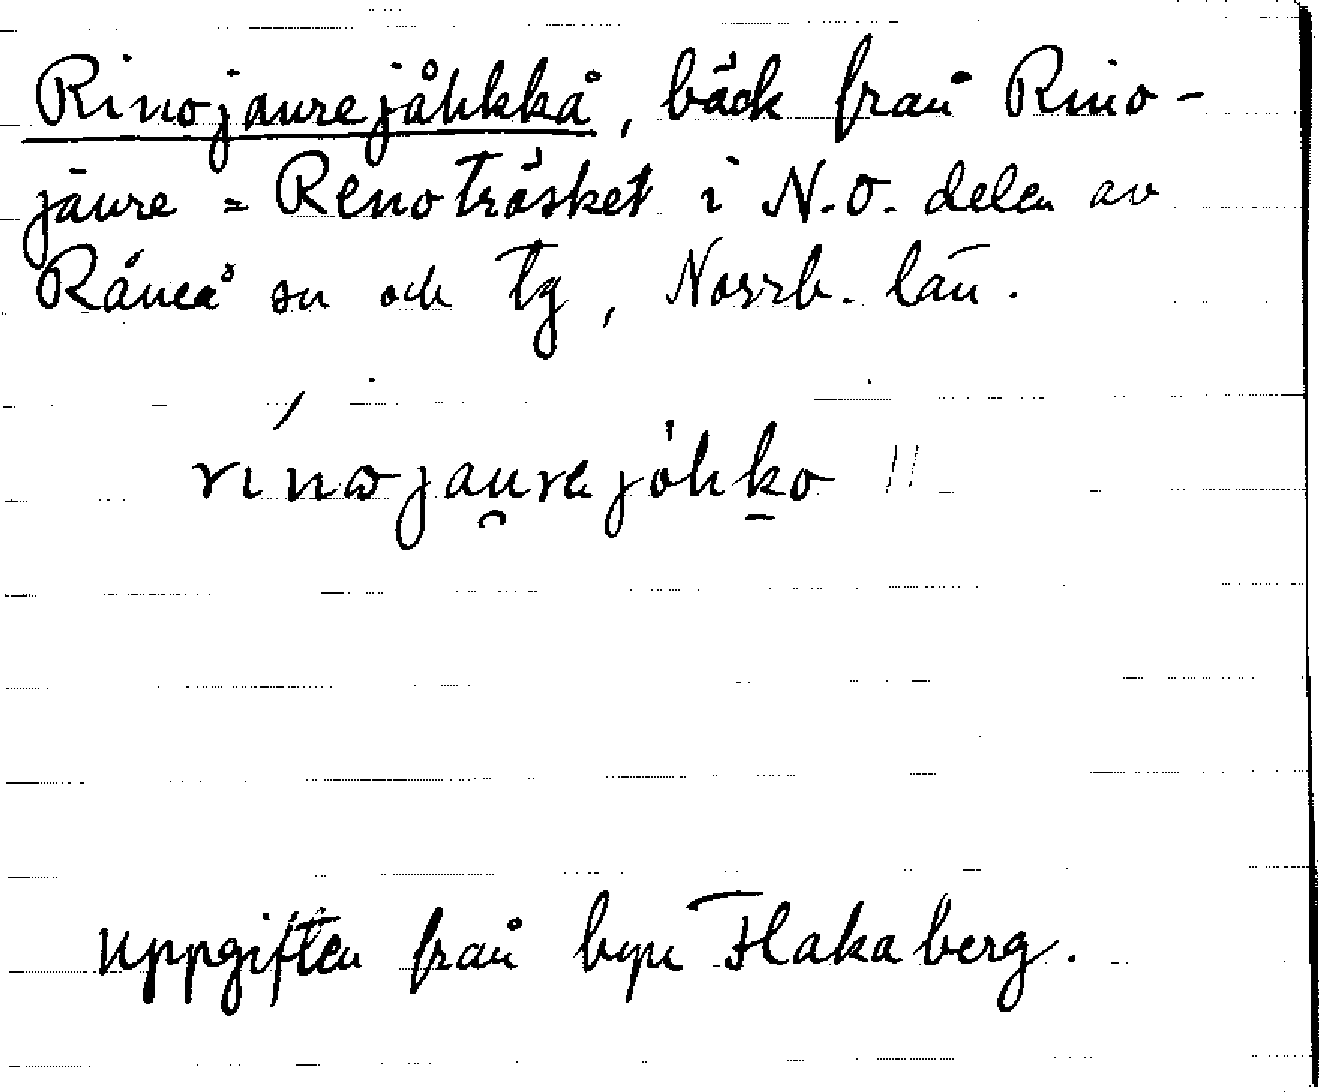 Rinojaurejåhkkå, bäck från Rino-
jaure = Renoträsket i N.O. delen av
Råneå sn och tg, Norrb. län.
rinojau̯rejóhḵo !!
Uppgiften från byn Flakaberg.